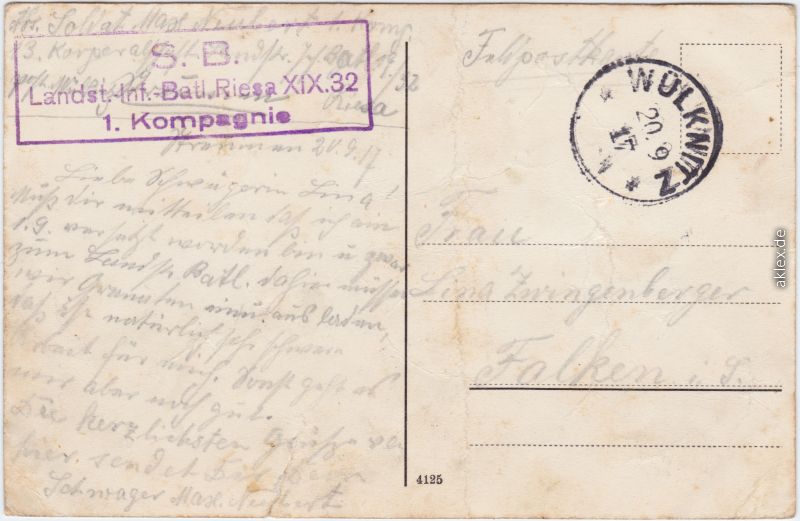 Abs. Soldat Max Neubert 1. Komp
3. Korporalschaft Landst. Inf. Batl.
XIX/32
Riesa
S. B.
Landst.-Inf.-Batl. Riesa XIX.32
1. Kompagnie
20.9.17
Liebe Schwägerin Lina!
Muß dir mitteilen daß ich am
1.9. versetzt worden bin u zwar
zum Landst. Batl. dahier müssen
wir Granaten ausladen,
daß ist natürlich sehr schwere
Arbeit für mich. Sonst geht es
mir aber noch gut.
Die herzlichsten Grüße von
hier sendet Dir Dein
Schwager Max Neubert
Feldpostkarte
WÜLKNITZ
20.9
17
Frau
Lina Zwingenberger
Falken i. S.
4125
aklex.de